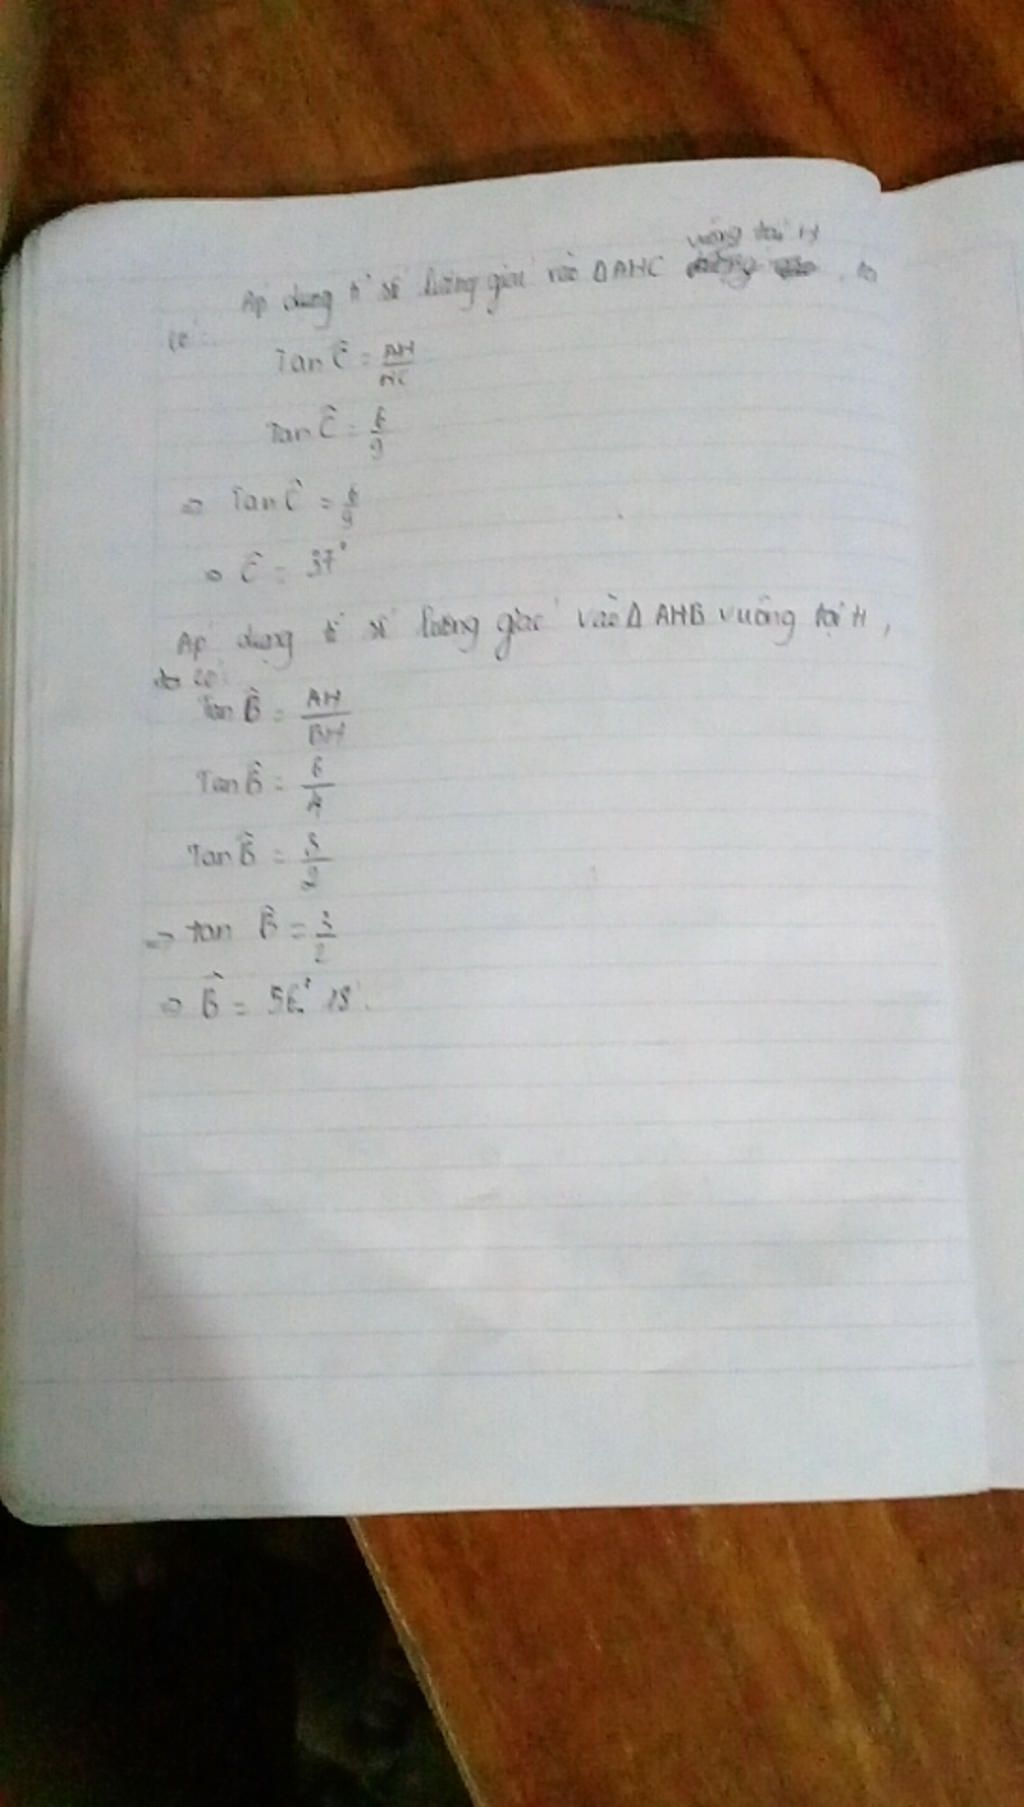 Áp dụng tỉ số lượng giác vào Δ AHC vuông tại H, ta
có:
Tan Ĉ = AH/HC
Tan Ĉ = 6/9
=> Tan Ĉ = 6/9
=> Ĉ = 37°
Áp dụng tỉ số lượng giác vào Δ AHB vuông tại H,
ta có:
Tan B̂ = AH/BH
Tan B̂ = 6/4
Tan B̂ = 3/2
=> tan B̂ = 3/2
=> B̂ = 56° 18'.